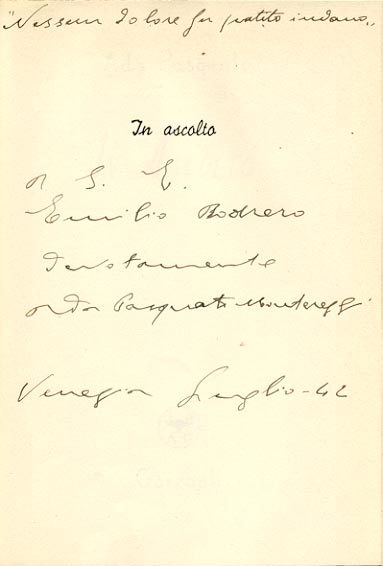 "Nessun dolore fu patito indano„
In ascolto
a S. E.
Emilio Bodrero
devotamente
Ada Pasquato Montereggi
Venezia Luglio - 42